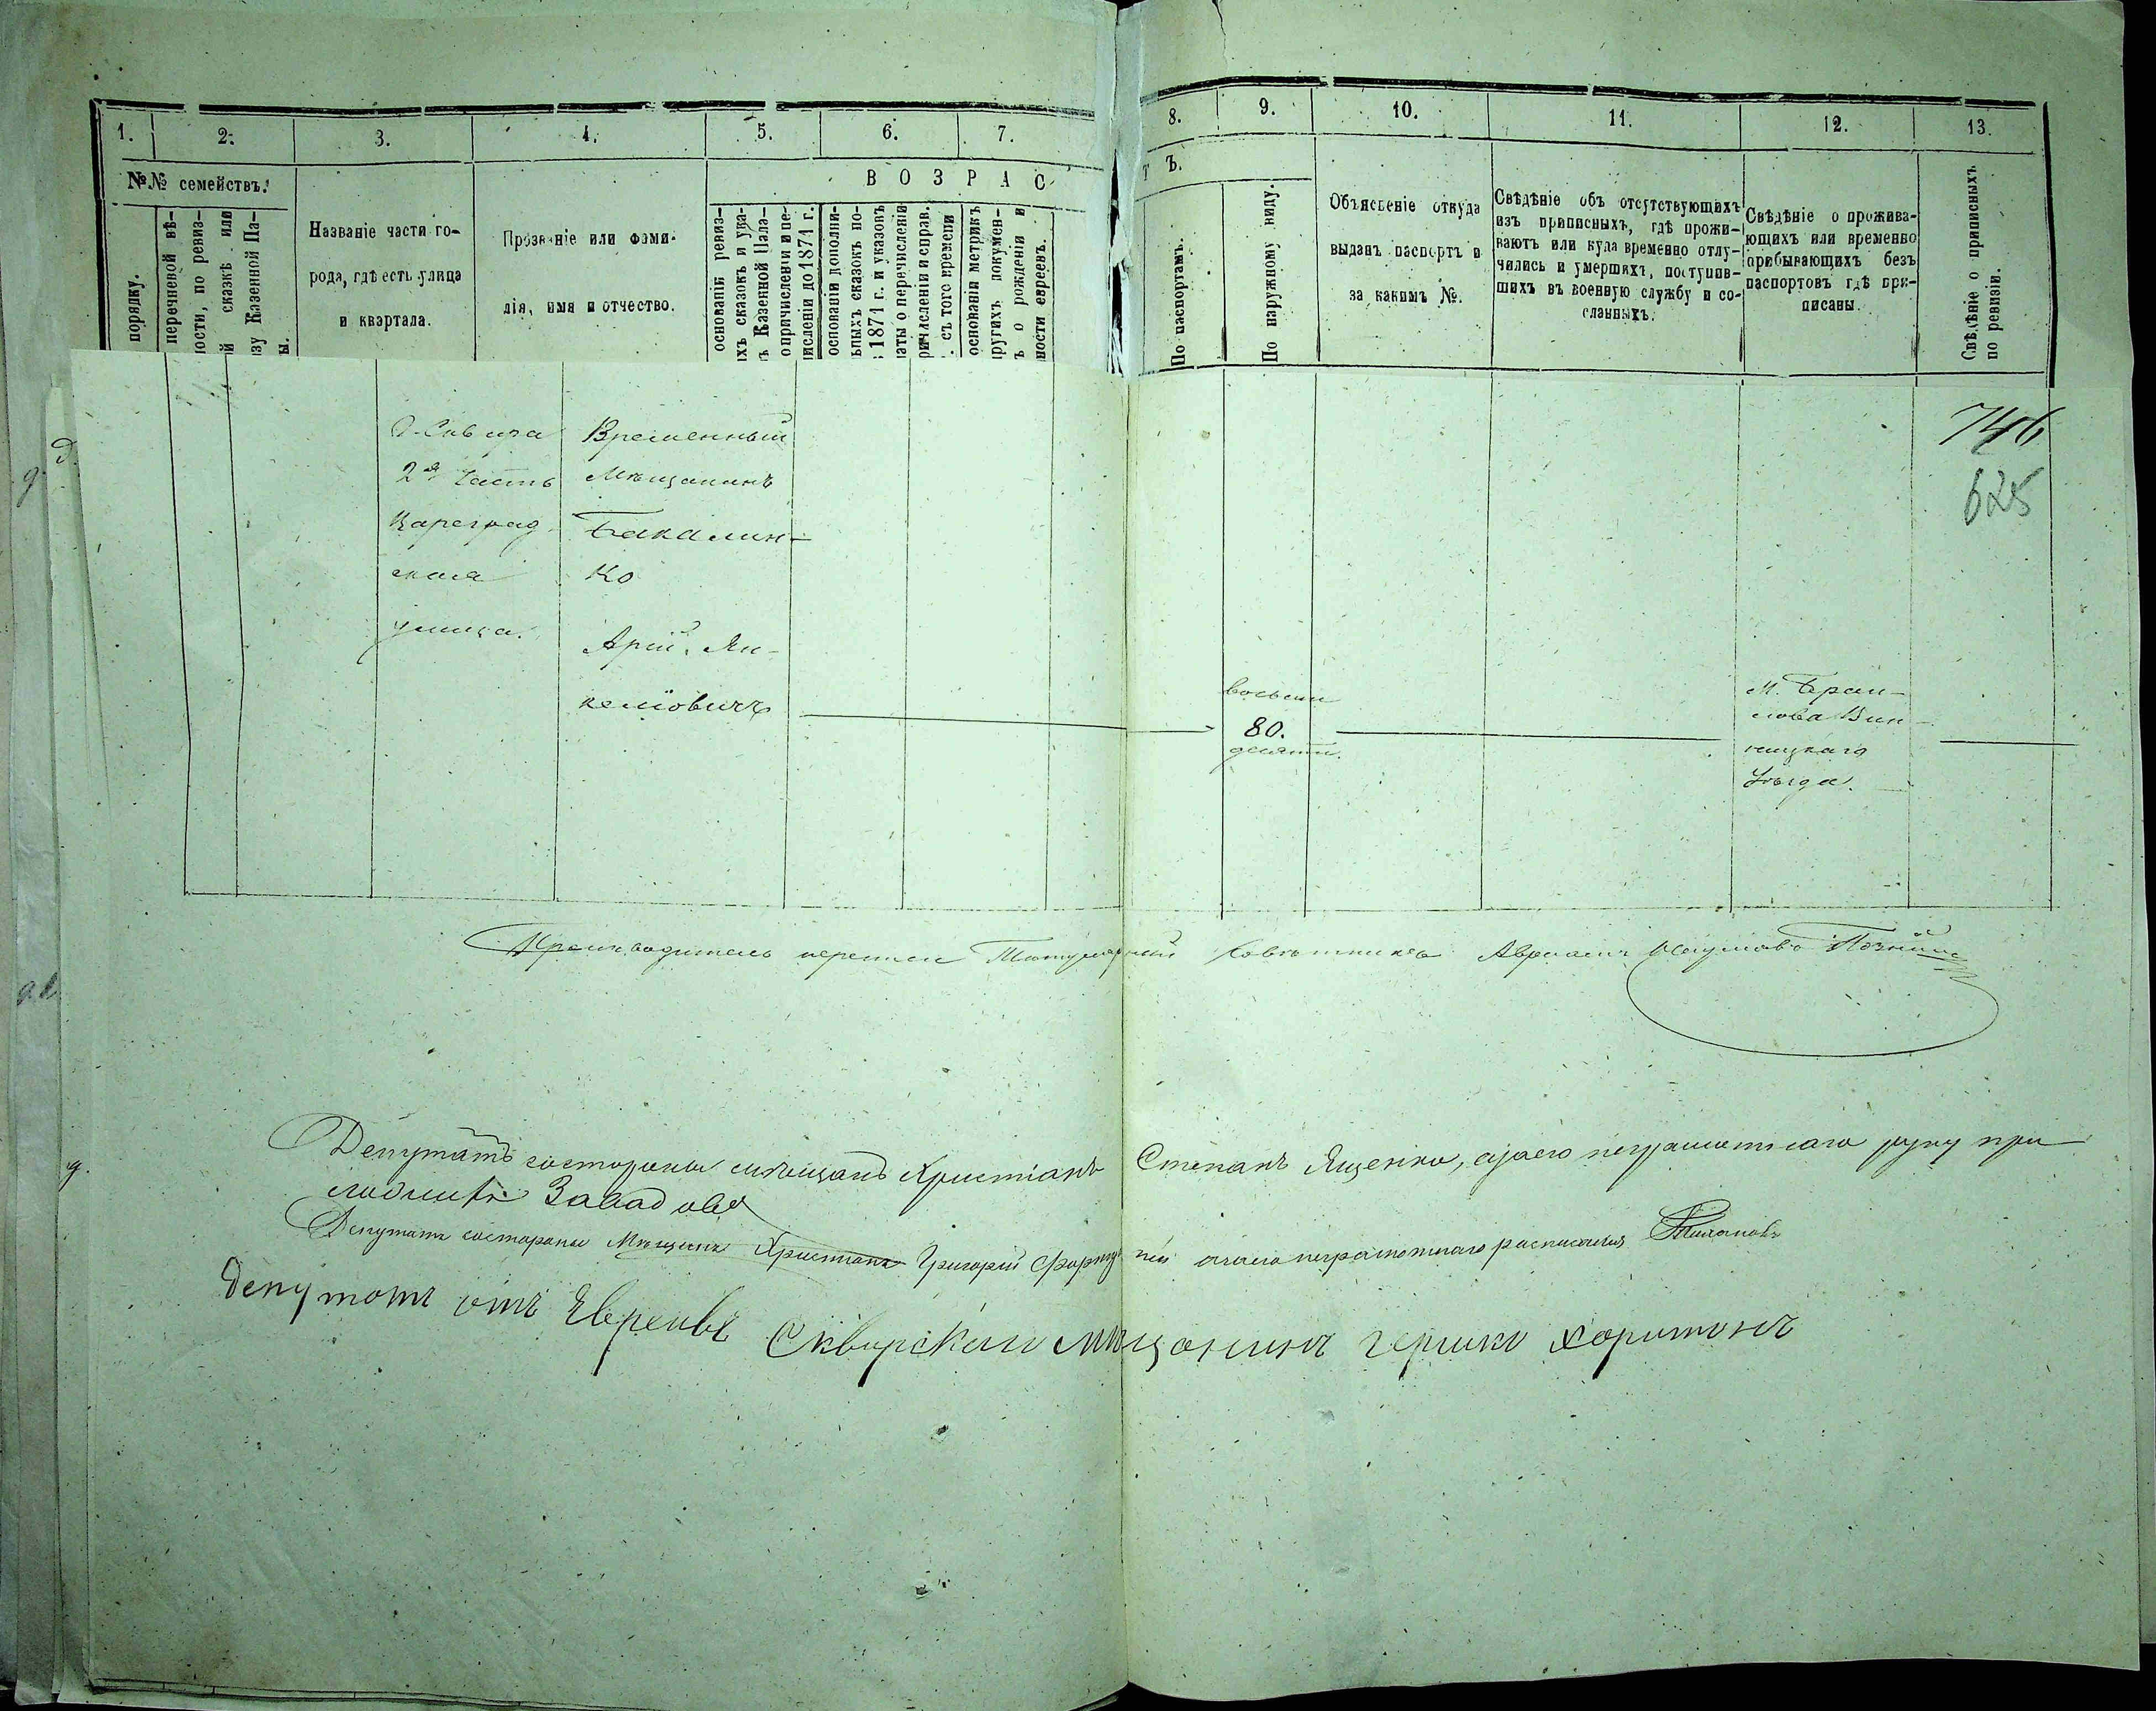 1. 2. 3. 4. 5. 6. 7. 8. 9. 10. 11. 12. 13.
№№ семействъ.
порядку.
перечневой вѣ-
ности, по ревиз-
й сказкѣ или
зу Казенной Па-
ы.
Названіе части го-
рода, гдѣ есть улица
и квартала.
Прозваніе или фами-
лія, имя и отчество.
ВОЗРАС
Т Ъ.
основаніи ревиз-
ихъ сказокъ и ука-
ъ Казенной Пала-
о причисленіи и пе-
исленіи до 1871 г.
основаніи дополни-
ьныхъ сказокъ по-
1871 г. и указовъ
аты о перечисленіи
ричисленіи и справ.
съ того времени
основаніи метрикъ
другихъ докумен-
ъ о рожденіи и
ности евреевъ.
По паспортамъ.
По наружному виду.
Объясненіе откуда
выданъ паспортъ и
за какимъ №.
Свѣдѣніе объ отсутствующихъ
изъ приписныхъ, гдѣ прожи-
ваютъ или куда временно отлу-
чились и умершихъ, поступив-
шихъ въ военную службу и со-
сланныхъ.
Свѣдѣніе о прожива-
ющихъ или временно
прибывающихъ безъ
паспортовъ гдѣ при-
писаны.
Свѣдѣніе о приписныхъ
по ревизіи.
746
625
Г. Сквира
2я Часть
Цареград
ская
улица.
Временный
Мѣщанинъ
Бакалин-
ко
Арій Ян-
келіовичъ
восьми
80.
десяти.
м. Браи-
лова Вин-
ницкаго
Уѣзда.
Производитель переписи Титулярный Совѣтникъ Авраамъ Наумовъ
Депутатъ состороны мѣщанъ Христіанъ Степанъ Ященко, а заего неграмотнаго руку при
Депутатъ состороны Мѣщанъ Христіанъ Григорій азаего неграмотнаго росписался
Депутатъ отъ Евреевъ Сквирскій мѣщанинъ Гершко Харитонъ